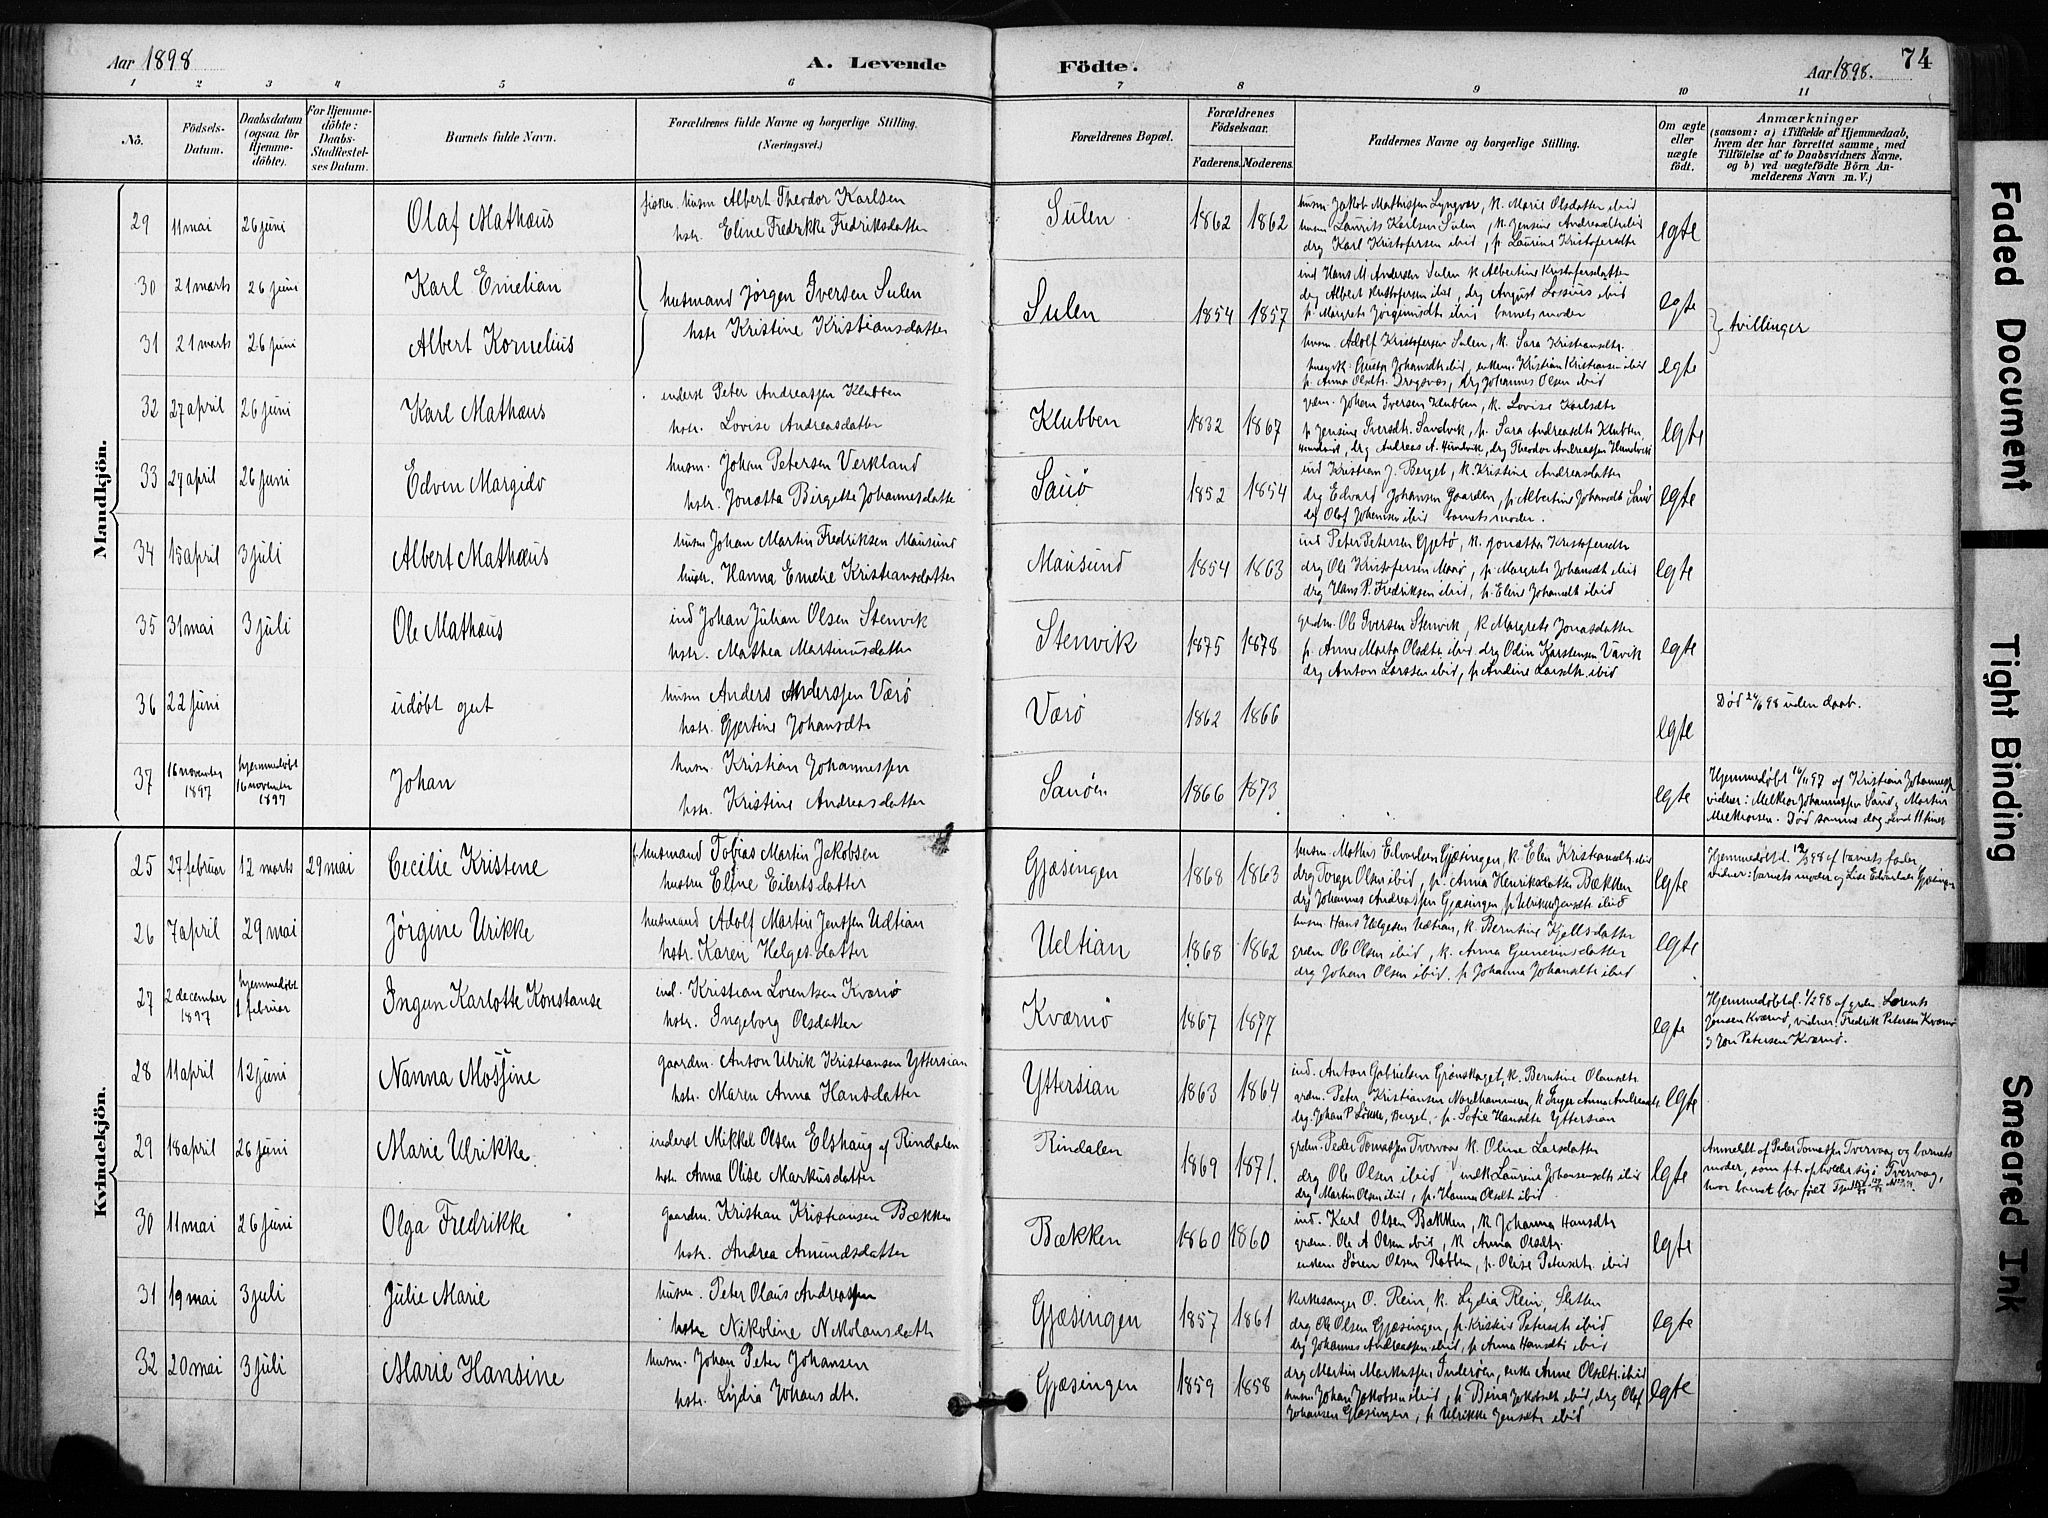 Aar 1898
A. Levende
Födte.
Aar 1898.
74
1 2 3 4 5 6 7 8 9 10 11
No.
Födsels-Datum.
Daabsdatum (ogsaa for Hjemmedöbte).
For Hjemmedöbte: Daabs-Stadfæstelses Datum.
Barnets fulde Navn.
Forældrenes fulde Navne og borgerlige Stilling.
(Næringsvei.)
Forældrenes Bopæl.
Forældrenes Födselsaar.
Faderens. Moderens.
Faddernes Navne og borgerlige Stilling.
Om ægte eller uægte födt.
Anmærkninger
(saasom: a) i Tilfælde af Hjemmedaab,
hvem der har forrettet samme, med
Tilföielse af to Daabsvidners Navne,
og b) ved uægtefödte Börn Anmelderens Navn m. V.)
Mandkjön.
29 11 mai 26 juni Olaf Mathæus
fisker husm Albert Theodor Karlsen
hstr. Eline Fredrikke Fredriksdatter
Sulen 1862 1862
husm Jakob Mathissen Lyngvær, k. Marie Olsdatter ibid
husm Laurits Karlsen Sulen, k. Jensine Andreasdtr ibid
drg Karl Kristofersen ibid, p. Laurine Kristofersdtr
egte
30 21 marts 26 juni Karl Emelian
husmand Jørgen Iversen Sulen
hstr Kristine Kristiansdatter
Sulen 1854 1857
ind Hans M Andersen Sulen k Albertine Kristofersdatter
drg Albert Kristofersen ibid, drg August Lossius ibid
p. Margrete Jørgensdtr ibid barnets moder
egte
tvillinger
31 21 marts 26 juni Albert Kornelius
husm. Adolf Kristofersen Sulen, k. Sara Kristiansdtr.
p. Anna Olsdtr. Dragsvæs, drg Johannes Olsen ibid
egte
32 27 april 26 juni Karl Mathæus
inderst Peter Andreassen Klubben
hstr. Lovise Andreasdatter
Klubben 1832 1867
grdm. Johan Iversen Klubben, k. Lovise Karlsdtr
p Jensine Iversdtr. Sandvik, p. Sara Andreasdtr Klubben
egte
33 27 april 26 juni Edvin Margido
husm. Johan Petersen Verkland
hstr. Jonetta Birgette Johannesdatter
Sauø 1852 1854
ind Kristian J. Berget, k. Kristine Andreasdatter
drg Edvard Johansen Gaarden, p. Albertine Johansdtr Sauø
drg Olaf Johansen ibid barnets moder.
egte
34 15 april 3 juli Albert Mathæus
husm Johan Martin Fredriksen Mausund
hustr. Hanna Emelie Kristiansdatter
Mausund 1854 1863
ind Peter Petersen Gjetø, k. Jonetta Kristofersdtr
drg Ole Kristofersen Maasø, p. Margrete Johansdtr ibid
drg Hans P. Fredriksen ibid, p. Eline Johansdt ibid
egte
35 31 mai 3 juli Ole Mathæus
ind Johan Julian Olsen Stenvik
hstr. Mathea Martinusdatter
Stenvik 1875 1878
grdm. Ole Iversen Stenvik, k Margrete Jonasdatter
p. Anne Marta Olsdtr ibid. drg Odin Karstensen Vavik
drg Anton Larssen ibid, p Andine Larsdtr ibid
egte
36 22 juni udøbt gut
husm Anders Anderssen Værø
hstr. Gjertine Johansdtr
Værø 1862 1866
egte
Død 24/6 98 uden daab.
37 16 november 1897 hjemmedøbt 16 november 1897 Johan
husm. Kristian Johannessen
hstr. Kristine Andreasdatter
Sauøen 1866 1873
egte
Hjemmedøbt 16/11 97 af Kristian Johannessen
vidner: Melkior Johannessen Sauø, Martin
Melkiorsen. Død samme dag
Kvindekjön.
25 27 februar 12 marts 29 mai Cecilie Kristene
f. husmand Tobias Martin Jakobsen
hustru Eline Eilertsdatter
Gjæsingen 1868 1863
husm. Mathis Edvardsen Gjæsingen, k. Elen Kristiansdtr ibid
drg Torger Olsen ibid, p. Anna Henriksdatter Bækken
drg Johannes Andreassen Gjæsingen, p. Ulrikke Jensdtr ibid
egte
Hjemmedøbt d. 12/3 98 af barnets fader,
vidner: barnets moder og Lise Edvardsdtr Gjæsingen
26 7 april 29 mai Jørgine Urikke
husmand Adolf Martin Jenssen Udtian
hstr. Karen Helgesdatter
Udtian 1868 1862
husm Hans Helgesen Udtian, k. Berntine Kjellsdatter
grdm Ole Olsen ibid, k. Anna Gunerusdatter
drg Johan Olsen ibid. p. Johanna Johansdtr ibid
egte
27 2 december 1897 hjemmedøbt 1 februar Ingun Karlotte Konstanse
ind. Kristian Lorentsen Kværnø
hstr. Ingeborg Olsdatter
Kværnø 1867 1877
egte
Hjemmedøbt d. 1/2 98 af grdm Lorents
Jensen Kværnø, vidner: Fredrik Petersen Kværnø
og Jon Petersen Kværnø.
28 11 april 12 juni Nanna Mossine
gaardm. Anton Ulrik Kristiansen Yttersian
hstr. Maren Anna Hansdatter
Yttersian 1863 1864
ind. Anton Gabrielsen Grønskaget, k. Berntine Olausdtr
grdm. Peter Kristiansen Nordhammeren, k Inger Anna Andreasdtr
drg. Johan P. Løkke, Berget, p. Sofie Hansdtr Yttersian
egte
29 18 april 26 juni Marie Ulrikke.
inderst Mikkel Olsen Elshaug af Rindalen
hstr. Anna Olise Markusdatter
Rindalen 1869 1871.
grdm Peder Tomassen Tvervaag k. Oline Larsdatter
drg Ole Olsen ibid Laurine Johannesdtr ibid
drg Martin Olsen ibid, p. Hanna Olsdtr ibid.
egte
Anmeldt af Peder Tomassen Tvervaag og barnets
moder, som p.t. opholder sig i Tvervaag,
hvor barnet blev født
30 11 mai 26 juni Olga Fredrikke
gaardm. Kristian Kristiansen Bækken
hstr. Andrea Amundsdatter
Bækken 1860 1860
ind. Karl Olsen Bækken, k Johanna Hansdtr
grdm. Ole A Olsen ibid, k. Anna Olsdtr.
enkem Søren Olsen Rabben, p. Olise Petersdtr ibid
egte
31 19 mai 3 juli Julie Marie
husm. Peter Olaus Andreassen
hstr Nikoline Nikolausdatter
Gjæsingen 1857 1861
Kirkesanger O. Rein, k. Lydia Rein, Sletten
drg Ole Olsen Gjæsingen, p. Kristine Petersdtr ibid
drg Johannes Andreassen ibid, p Anna Hansdtr ibid
egte
32 20 mai 3 juli Marie Hansine
husm. Johan Peter Johansen
hstr. Lydia Johansdtr.
Gjæsingen 1859 1858
drg Martin Markussen Inderøen, enke Anne Olsdtr ibid
husm Johan Jakobsen ibid, p Beria Jakobsdtr ibid, drg Olaf
Johansen Gjæsingen, p Ulrikke Jensdtr ibid
egte
Faded Document
Tight Binding
Smeared Ink